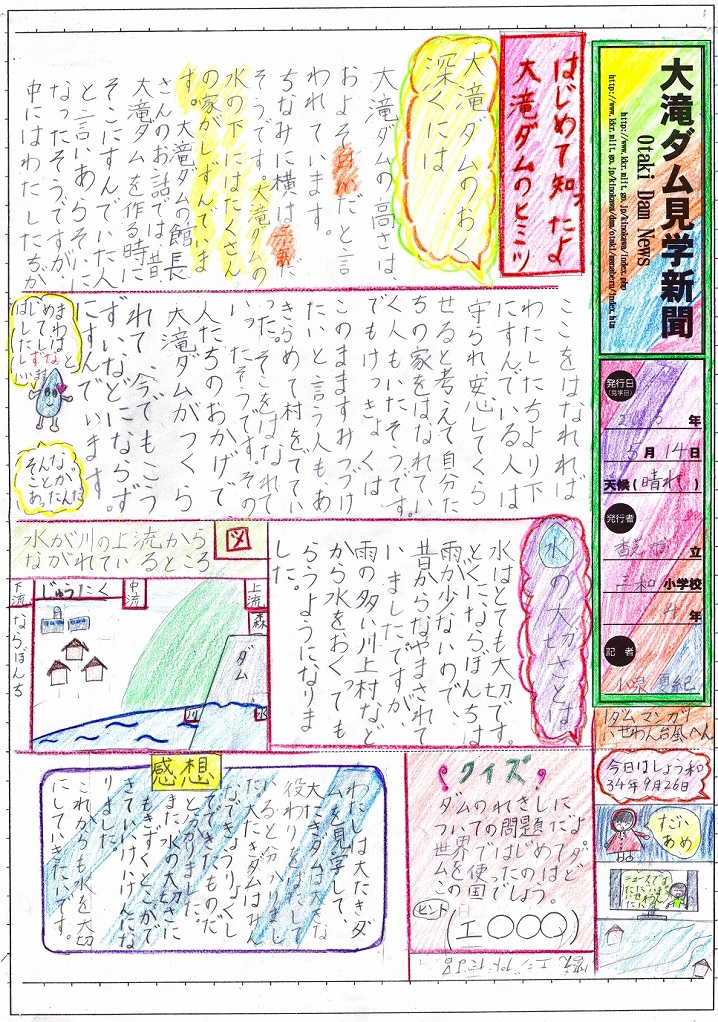 大滝ダム見学新聞
Otaki Dam News
http://www.kkr.mlit.go.jp/kinokawa/index.php
発行日
(見学日)
年
5月14日
天候(晴れ)
発行者
立
三和小学校
4年
記者
はじめて知ったよ
大滝ダムのヒミツ
大滝ダムのおく
深くには
大滝ダムの高さは、
およそ
だと言
われています。
ちなみに横は
だ
そうです。大滝ダムの
水の下にはたくさん
の家がしずんでいま
す。大滝ダムの館長
さんのお話では、昔、
大滝ダムを作る時に
そこにすんでいた人
と言いあらそいに
なったそうですが、
中にはわたしたちが
ここをはなれれば
わたしたちより下
にすんでいる人は
守られ安心してくら
せると考えて自分た
ちの家をはなれてい
く人もいたそうです。
でもけっきょくは
このまますみつづけ
たいと言う人もあ
きらめて村をでてい
った。そこをはなれて
いったそうです。その
人たちのおかげで
大滝ダムがつくら
れて今でもこう
ずいなどにならず
にすんでいます。
はじめ
そんな
ことが
あったんだ
水の大切さとは
水はとても大切です。
とくにならぼんちは
雨が少ないので、
昔からなやまされて
いましたですが、
雨の多い川上村など
から水をおくっても
らうようになりま
した。
図
水が川の上流から
ながれているところ
上流
森
中流
じゅうたく
下流
ならぼんち
ダム
川
水
感想
わたしは大たきダ
ムを見学して、
大たきダムは大きな
役わりをはたして
いると分かりまし
た。大たきダムはみん
なできょうりょくし
てできたものだ
と分かりました。
また水の大切さに
もきずくことがで
きていいけいけんにな
りました。
これからも水を大切
にしていきたいです。
クイズ
ダムのれきしに
ついての問題だよ
世界ではじめてダ
ムを使ったのはど
この国でしょう。
ヒント
(エ○○○)
答え エジプトだよ
ダムマンガ
いせわん台風へん
今日はしょう和
34年9月26日
すごい
あめ